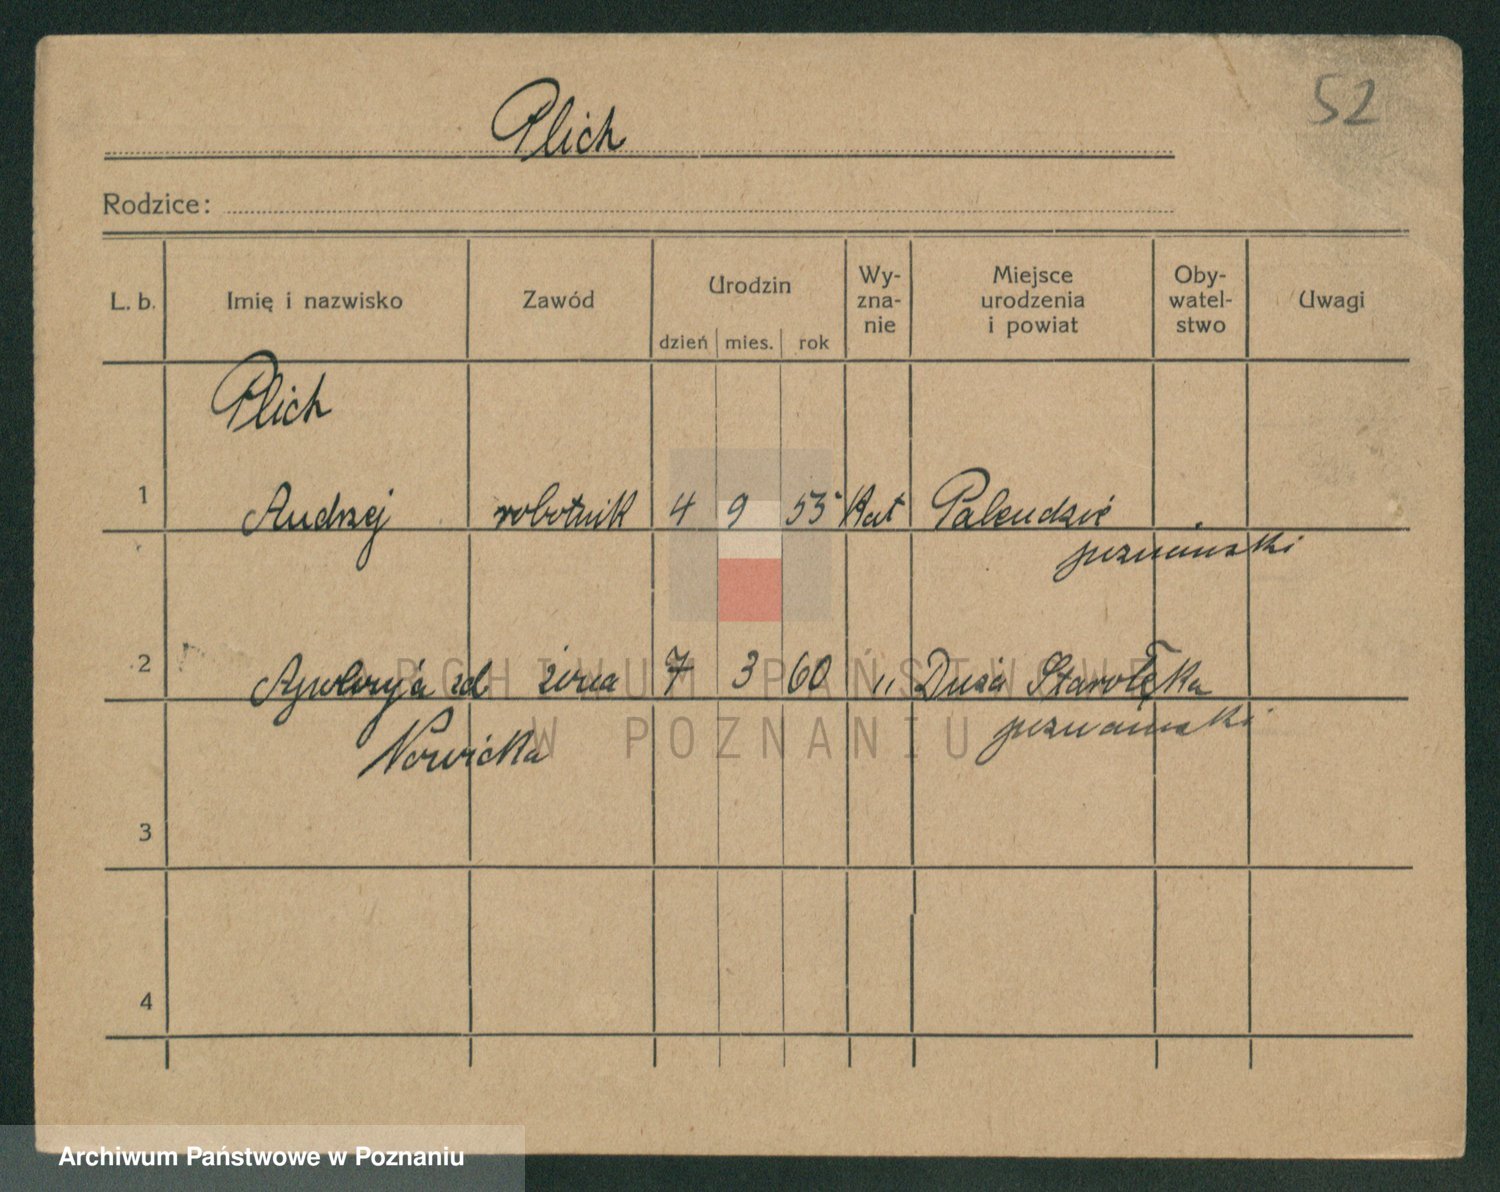 52
Plich
Rodzice:
L. b. Imię i nazwisko Zawód Urodzin dzień mies. rok Wy-zna-nie Miejsce urodzenia i powiat Oby-watel-stwo Uwagi
Plich
1 Andrzej robotnik 4 9 53 Kat Palendzie
poznański
2 Apolonja zd żona 7 3 60 " Duża Starołęka
Nowicka poznański
3
4
ARCHIWUM PAŃSTWOWE
W POZNANIU
Archiwum Państwowe w Poznaniu